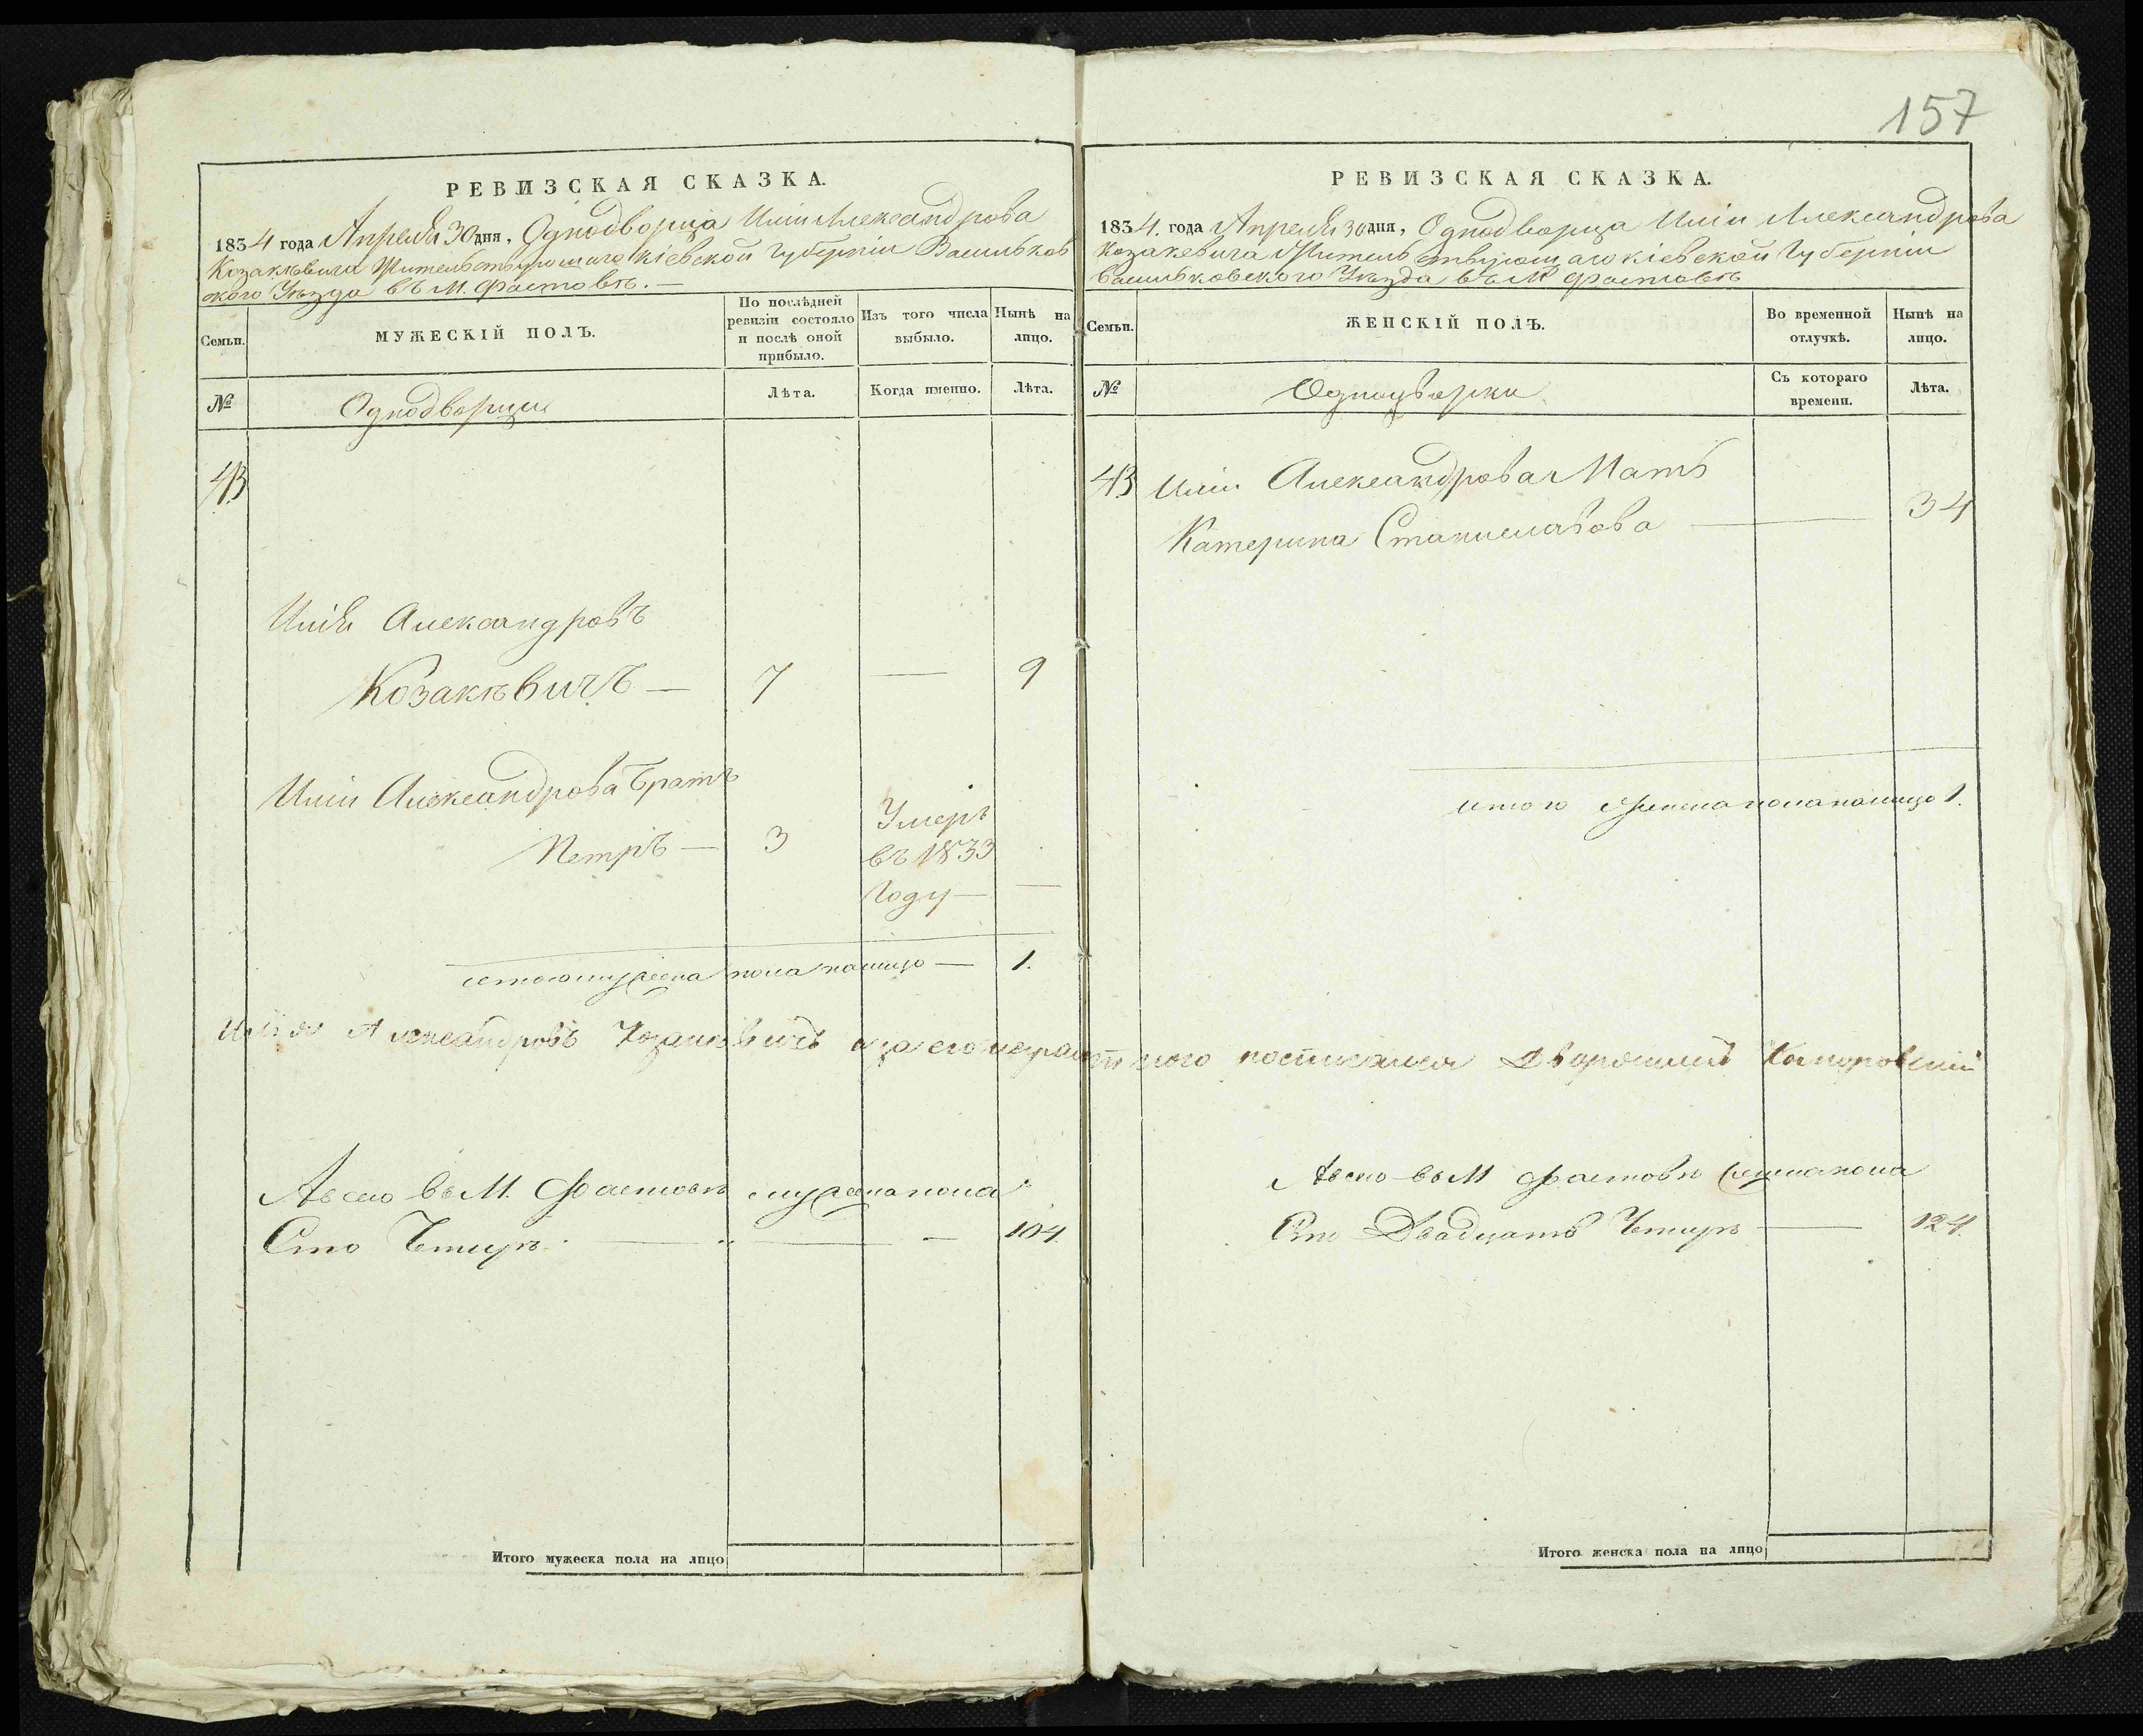 157
РЕВИЗСКАЯ СКАЗКА.
1834 года Апреля 30 дня, Однодворца Иліи Александрова
Козакѣвича Жительствующаго Кіевской Губерніи Васильков
ского Уѣзда въ М. Фастовѣ. —
Семьи.
МУЖЕСКІЙ ПОЛЪ.
По послѣдней ревизіи состояло и послѣ оной прибыло.
Изъ того числа выбыло.
Нынѣ на лицо.
№
Однодворцы
Лѣта.
Когда именно.
Лѣта.
43
Илія Александровъ
Козакѣвичъ — 7 — 9
Иліи Александрова Братъ
Петръ — 3 Умеръ
въ 1833
Году — —
итого мужеска пола налицо — 1.
Илія Александровъ Козакѣвичъ а за его неграмотного
Авсего въ М. Фастовѣ мужеска пола
Сто Четыре — — 104.
Итого мужеска пола на лицо
РЕВИЗСКАЯ СКАЗКА.
1834. года Апреля 30 дня, Однодворца Иліи Александрова
Козакевича Жительствующаго Кіевской Губерніи
Васильковского Уѣзда въ М Фастовѣ
Семьи.
ЖЕНСКІЙ ПОЛЪ.
Во временной отлучкѣ.
Нынѣ на лицо.
№
Однодворки
Съ котораго времени.
Лѣта.
43 Иліи Александрова Мать
Катерина Станиславова — 34
итого женска пола налицо 1.
росписался Дворянинъ
Авсего въ М Фастовѣ женска пола
Сто Двадцать Четыре — 124.
Итого женска пола на лицо